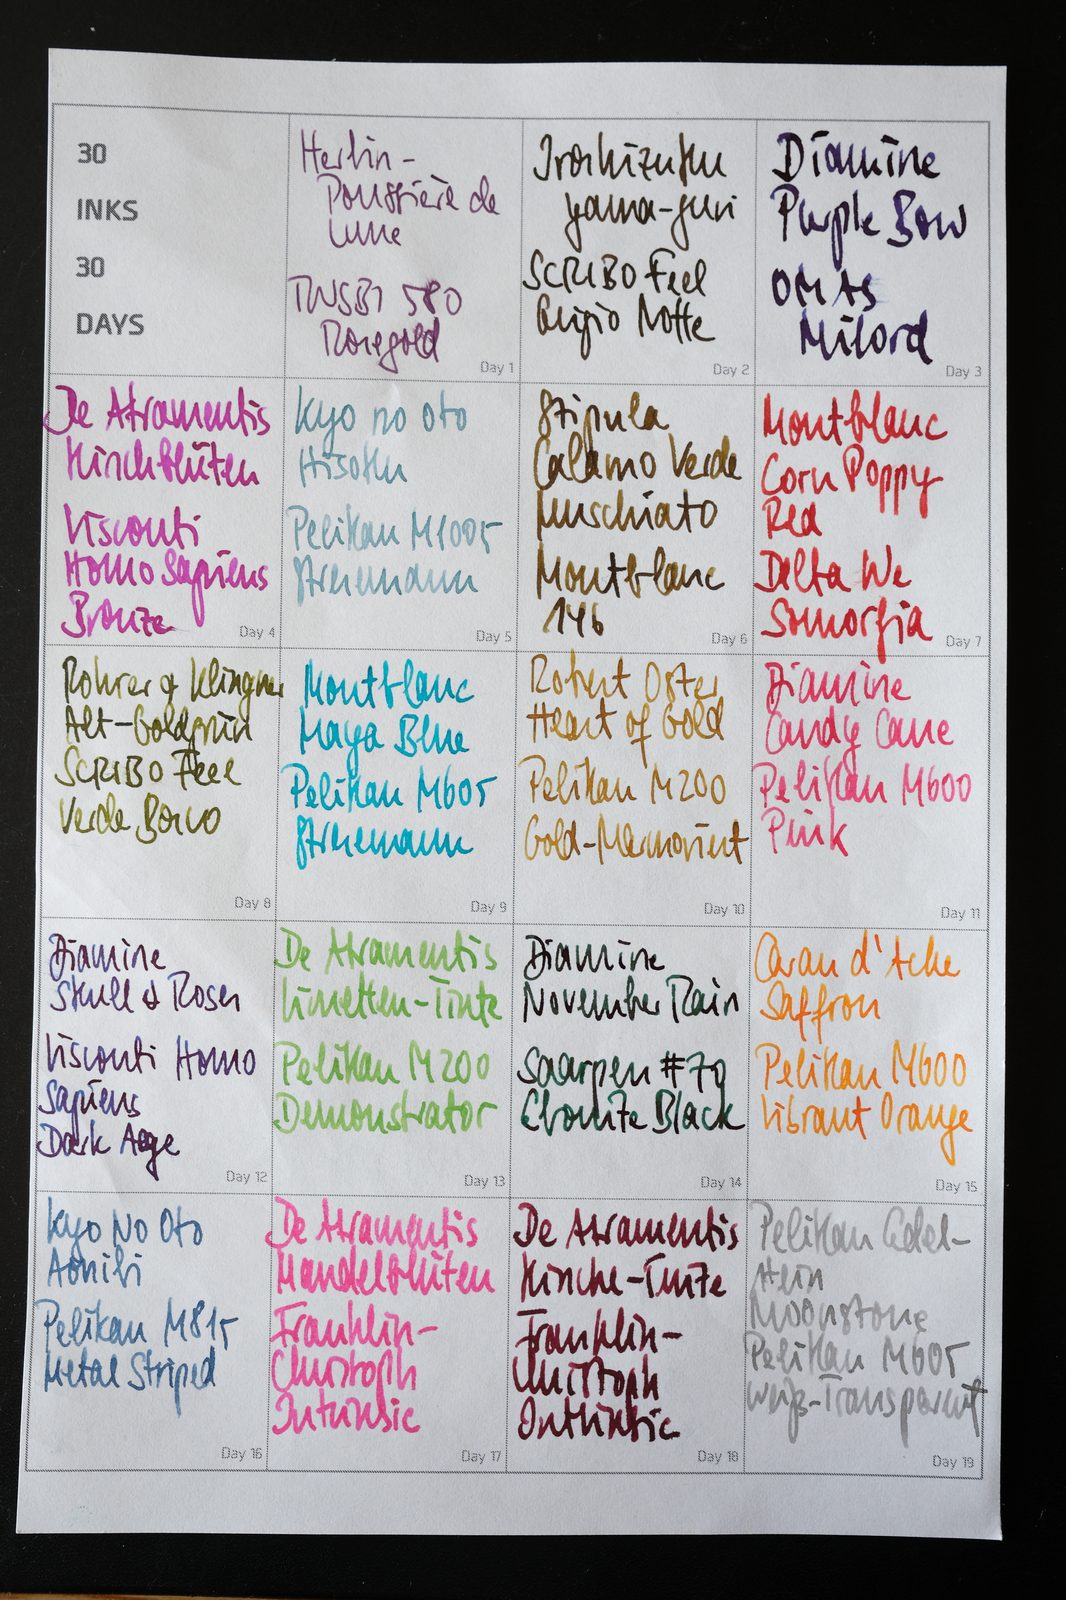 30
INKS
30
DAYS
Herbin-
Poussière de
Lune
TWSBI 580
Rosegold
Day 1
Iroshizuku
yama-guri
SCRIBO Feel
Grigio Notte
Day 2
Diamine
Purple Bow
OMAS
Milord
Day 3
De Atramentis
Kirschblüten
Visconti
Homo Sapiens
Bronze
Day 4
Kyo no oto
Hisoku
Pelikan M1005
Stresemann
Day 5
Stipula
Calamo Verde
Muschiato
Montblanc
146
Day 6
Montblanc
Corn Poppy
Red
Delta We
Somorfia
Day 7
Rohrer & Klingner
Alt-Goldgrün
SCRIBO Feel
Verde Bosco
Day 8
Montblanc
Maya Blue
Pelikan M605
Stresemann
Day 9
Robert Oster
Heart of Gold
Pelikan M200
Gold-Marmoriert
Day 10
Diamine
Candy Cane
Pelikan M600
Pink
Day 11
Diamine
Skull & Roses
Visconti Homo
Sapiens
Dark Age
Day 12
De Atramentis
Limetten-Tinte
Pelikan M200
Demonstrator
Day 13
Diamine
November Rain
Saarpen #79
Ebonite Black
Day 14
Caran d'Ache
Saffron
Pelikan M600
Vibrant Orange
Day 15
Kyo No Oto
Aonibi
Pelikan M815
Metal Striped
Day 16
De Atramentis
Mandelblüten
Franklin-
Christoph
Intrinsic
Day 17
De Atramentis
Kirsche-Tinte
Franklin-
Christoph
Intrinsic
Day 18
Pelikan Edel-
stein
Moonstone
Pelikan M605
weiß-Transparent
Day 19